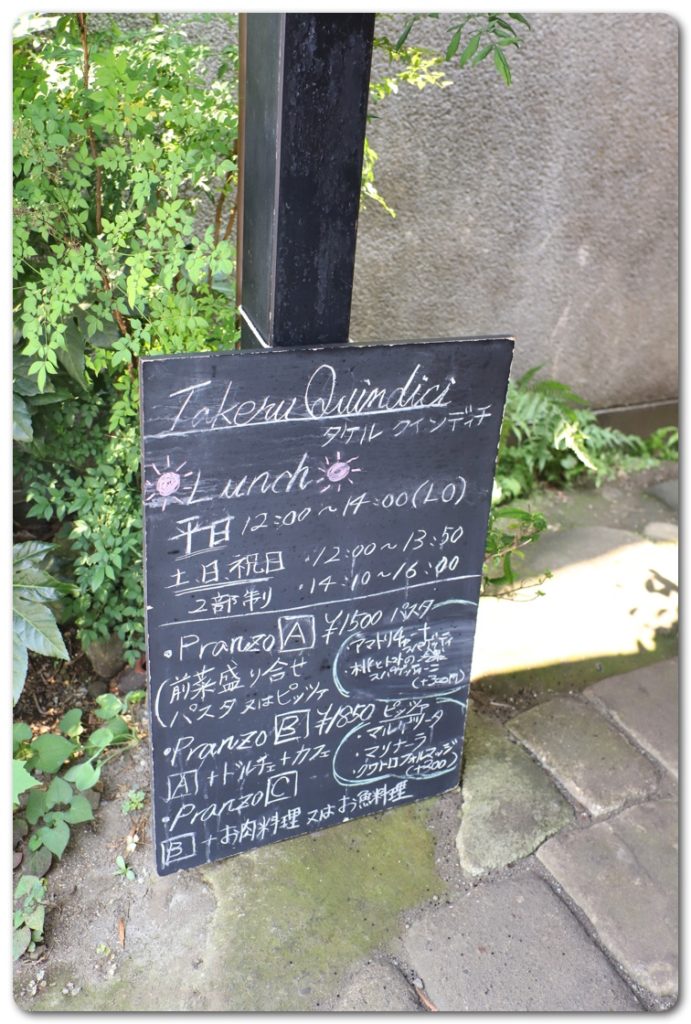 Takeru Quindici
タケル クインディチ
Lunch
平日 12:00～14:00(LO)
土.日.祝日 ・12:00～13:50
2部制 ・14:10～16:00
・Pranzo A ¥1500 パスタ
(前菜盛り合せ
パスタ 又はピッツァ
・アマトリチャーナ
スパゲッティ
トマトの
スパゲッティーニ
(+300円)
・Pranzo B ¥1850 ピッツァ
A + ドルチェ + カフェ
・マルゲリータ
・マリナーラ
・クワトロフォルマッジ
(+300)
・Pranzo C
B + お肉料理 又はお魚料理